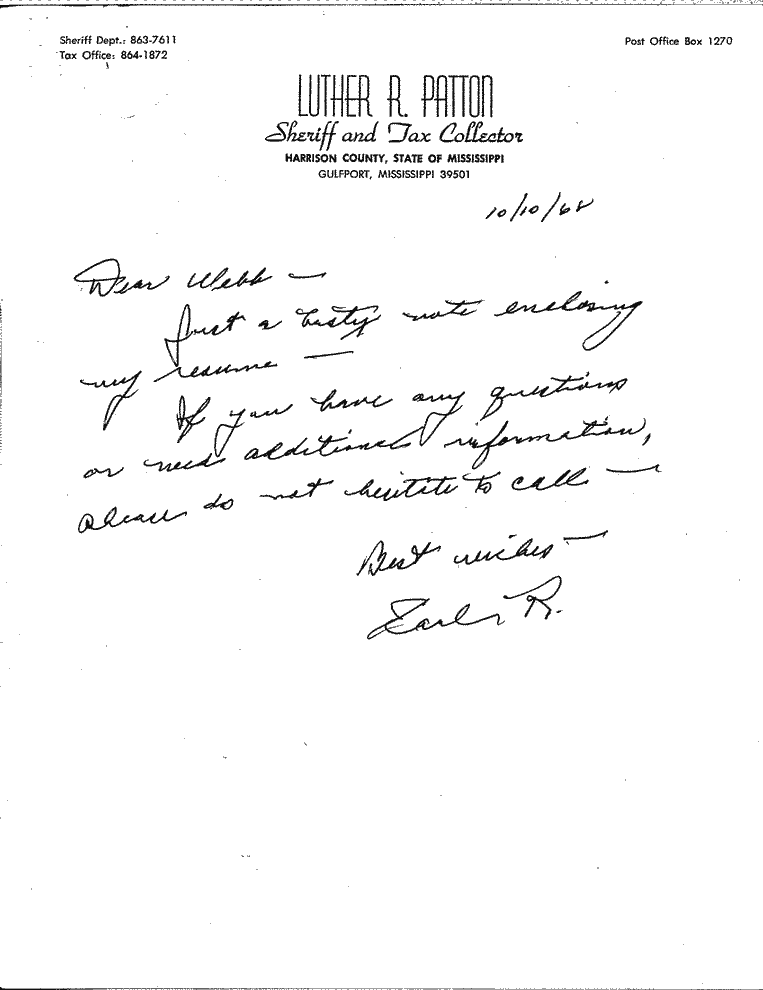 Sheriff Dept.: 863-7611
Tax Office: 864-1872
Post Office Box 1270
LUTHER R. PATTON
Sheriff and Tax Collector
HARRISON COUNTY, STATE OF MISSISSIPPI
GULFPORT, MISSISSIPPI 39501
10/10/68
Dear Webb —
Just a hasty note enclosing
my resume —
If you have any questions
or need additional information,
please do not hesitate to call —
Best wishes —
Earl R.